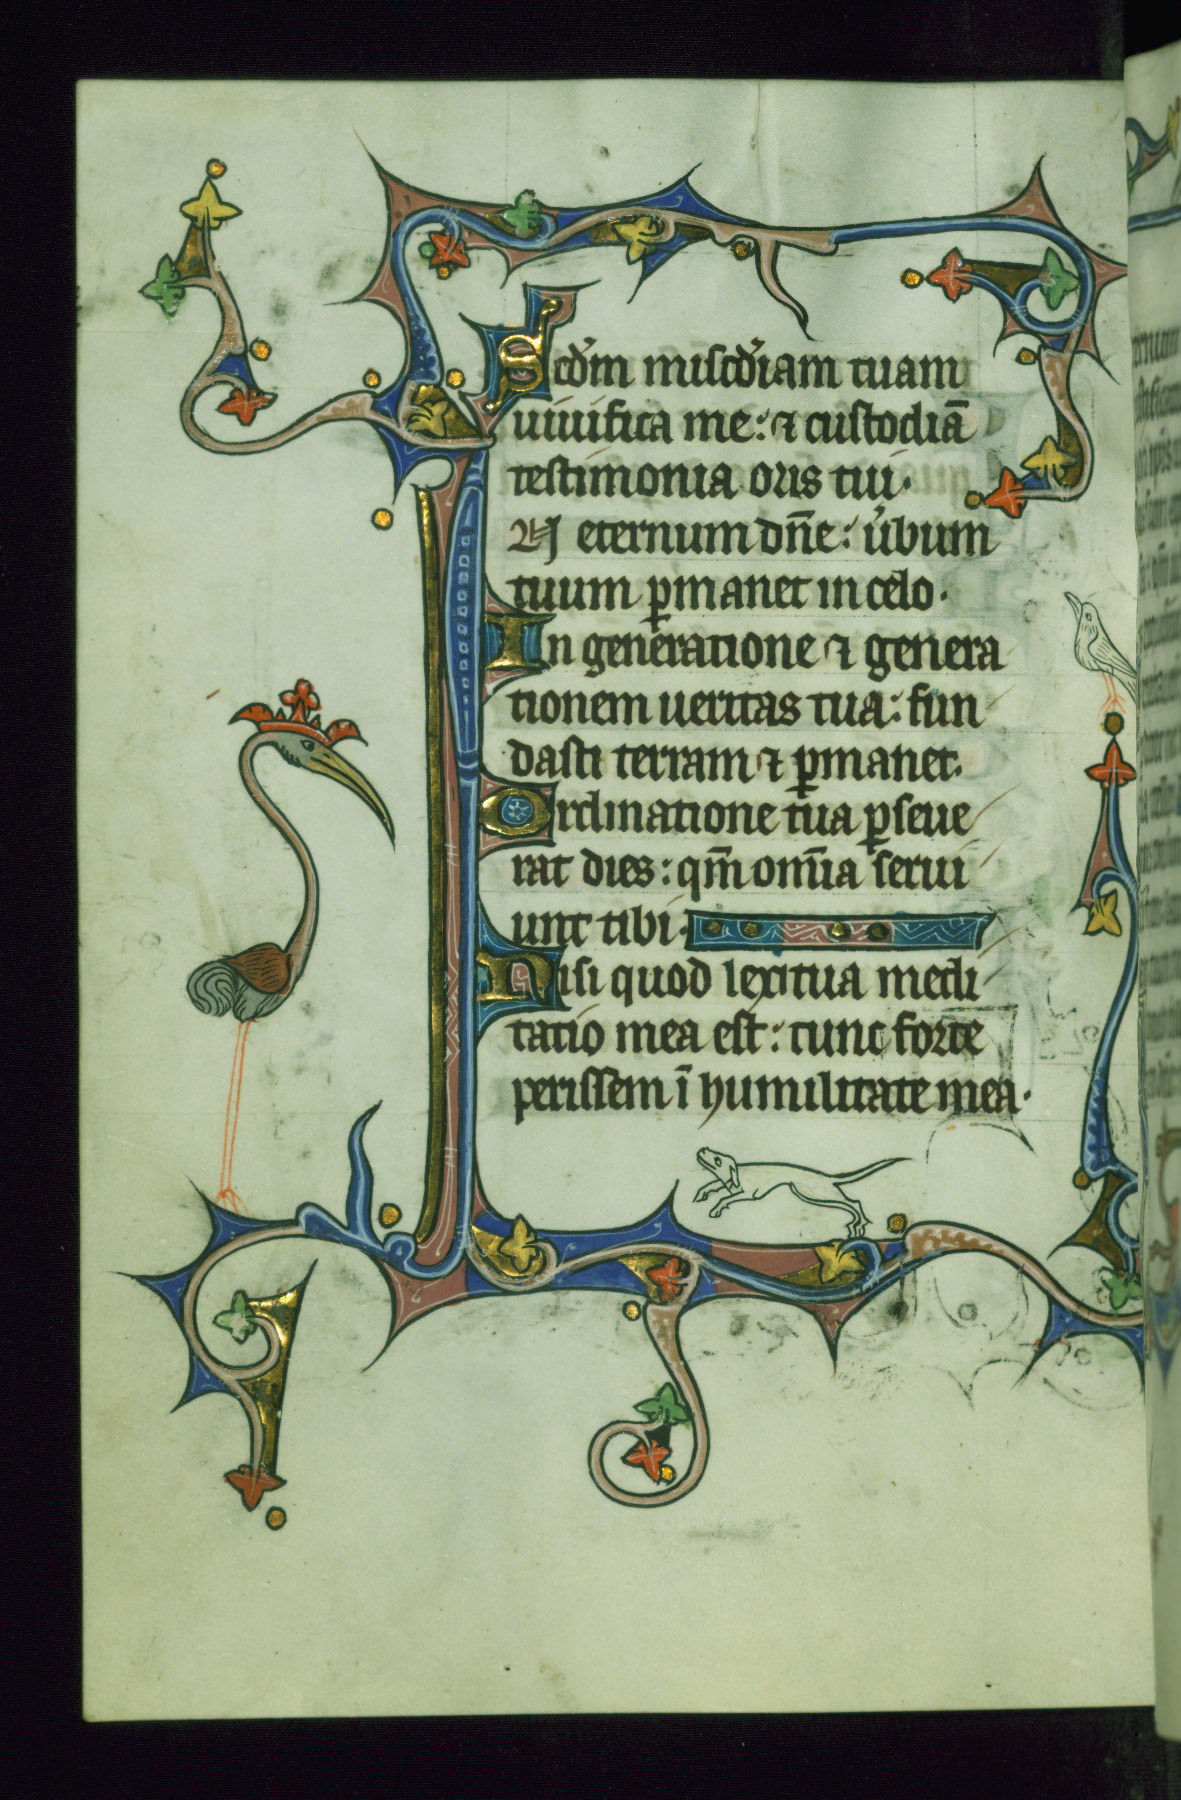 Scd̓m misc̄d̓iam tuam
uiuifica me: ⁊ custodiā
testimonia oris tui.
IN eternum dn̄e: u̓bum
tuum ꝑmanet in celo.
In generatione ⁊ genera
tionem ueritas tua: fun
dasti terram ⁊ ꝑmanet.
Ordinatione tua ꝑseue
rat dies: qm̄ omīa serui
unt tibi.
Nisi quod lex tua medi
tatio mea est: tunc forte
perissem ī humilitate mea.